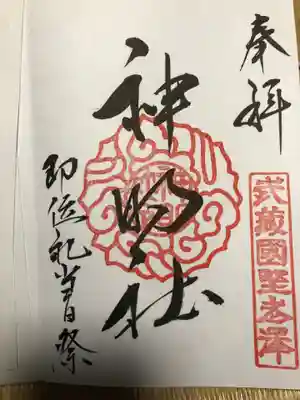 奉拝
武蔵國野老澤
神明社
即位礼当日祭